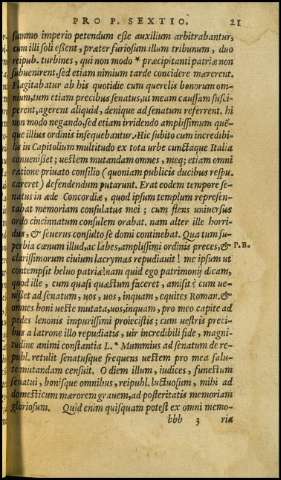 PRO P. SEXTIO. 21
summo imperio petendum esse auxilium arbitrabantur,
cum illi soli essent, præter furiosum illum tribunum, duo
reipub. turbines, qui non modo * præcipitanti patriæ non
subuenirent, sed etiam nimium tarde concidere mærerent.
Flagitabatur ab his quotidie cum querelis bonorum om-
nium, tum etiam precibus senatus, ut meam caussam susci-
perent, agerent aliquid, denique ad senatum referrent. hi
non modo negando, sed etiam irridendo amplissimum quem-
que illius ordinis insequebantur. Hic subito cum incredibi-
lis in Capitolium multitudo ex tota urbe cunctaque Italia
conuenisset; uestem mutandam omnes, meq; etiam omni
ratione priuato consilio (quoniam publicis ducibus respu.
careret) defendendum putarunt. Erat eodem tempore se-
natus in æde Concordiæ, quod ipsum templum represen-
tabat memoriam consulatus mei; cum flens uniuersus
ordo cincinnatum consulem orabat. nam alter ille horri-
dus, & seuerus consulto se domi continebat. Qua tum su-
perbia cænum illud, ac labes, amplissimi ordinis preces, &
P. B.
clarissimorum ciuium lacrymas repudiauit! me ipsum ut
contempsit helluo patriæ! nam quid ego patrimonij dicam,
quod ille, cum quasi quæstum faceret, amisit? cum ue-
nisset ad senatum, uos, uos, inquam, equites Roman. &
omnes boni ueste mutata, uos, inquam, pro meo capite ad
pedes lenonis impurissimi proiecistis; cum uestris preci-
bus a latrone illo repudiatis, uir incredibili fide, magni-
tudine animi constantia L. * Mummius ad senatum de re-
publ. retulit senatusque frequens uestem pro mea salu-
te mutandam censuit. O diem illum, iudices, funestum
senatui, bonisque omnibus, reipubl. luctuosum, mihi ad
domesticum mærorem grauem, ad posteritatis memoriam
gloriosum. Quid enim quisquam potest ex omni memo-
bbb 3 ria